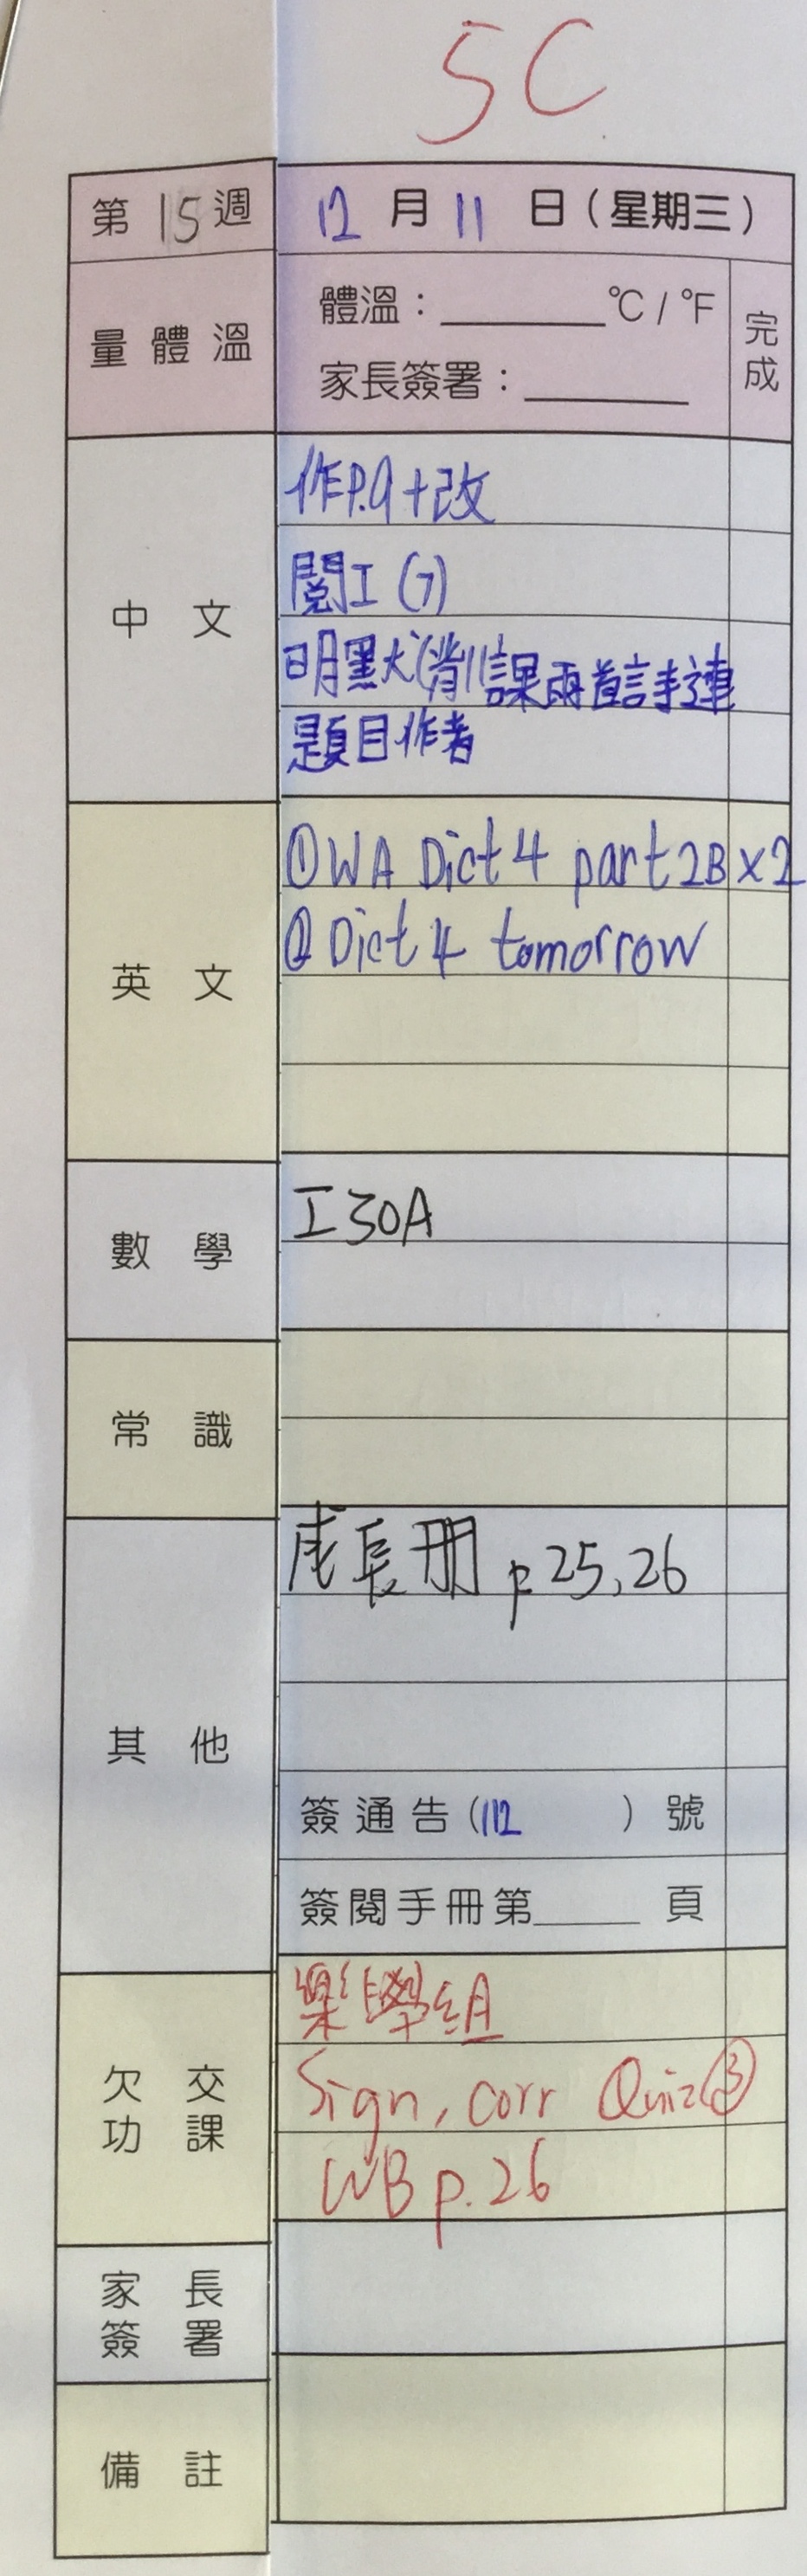 5C
第 15 週 12 月 11 日(星期三)
量體溫 體溫:______°C / °F 完成
家長簽署:______
中文 作P.9+改
閱工(7)
明默(背)課兩首詩連
題目作者
英文 ①WA Dict 4 part 2B x2
② Dict 4 tomorrow
數學 工30A
常識
其他 成長冊 p.25,26
簽通告(112 )號
簽閱手冊第______頁
欠交功課 樂學組
Sign, corr Quiz③
WB p.26
家長簽署
備註